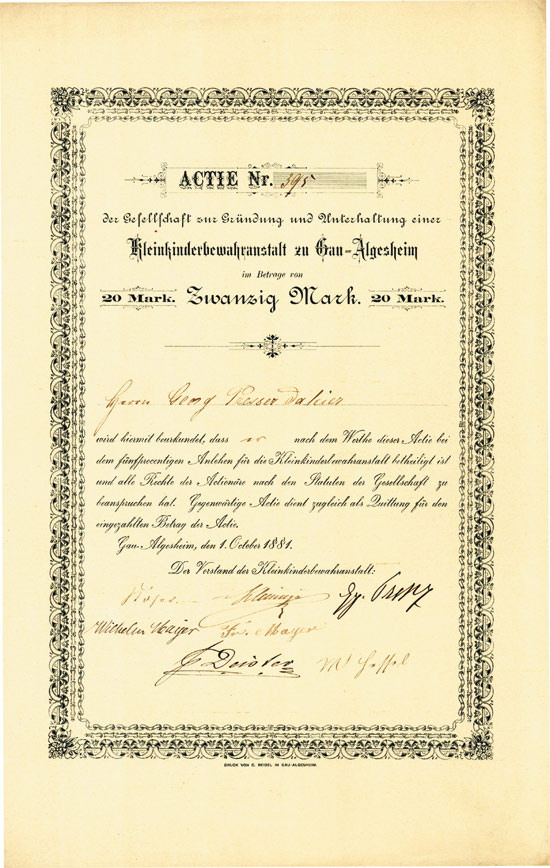 ACTIE Nr. 395
der Gesellschaft zur Gründung und Unterhaltung einer
Kleinkinderbewahranstalt zu Gau-Algesheim
im Betrage von
20 Mark. Zwanzig Mark. 20 Mark.
Herrn Georg Dahier
wird hiermit beurkundet, dass er nach dem Werthe dieser Actie bei
dem fünfprocentigen Anlehen für die Kleinkinderbewahranstalt betheiligt ist
und alle Rechte der Actionäre nach den Statuten der Gesellschaft zu
beanspruchen hat. Gegenwärtige Actie dient zugleich als Quittung für den
eingezahlten Betrag der Actie.
Gau-Algesheim, den 1. October 1881.
Der Vorstand der Kleinkinderbewahranstalt:
Wilhelm Mayer Fr. Mayer
Deister
DRUCK VON C. REIDEL IN GAU-ALGESHEIM.